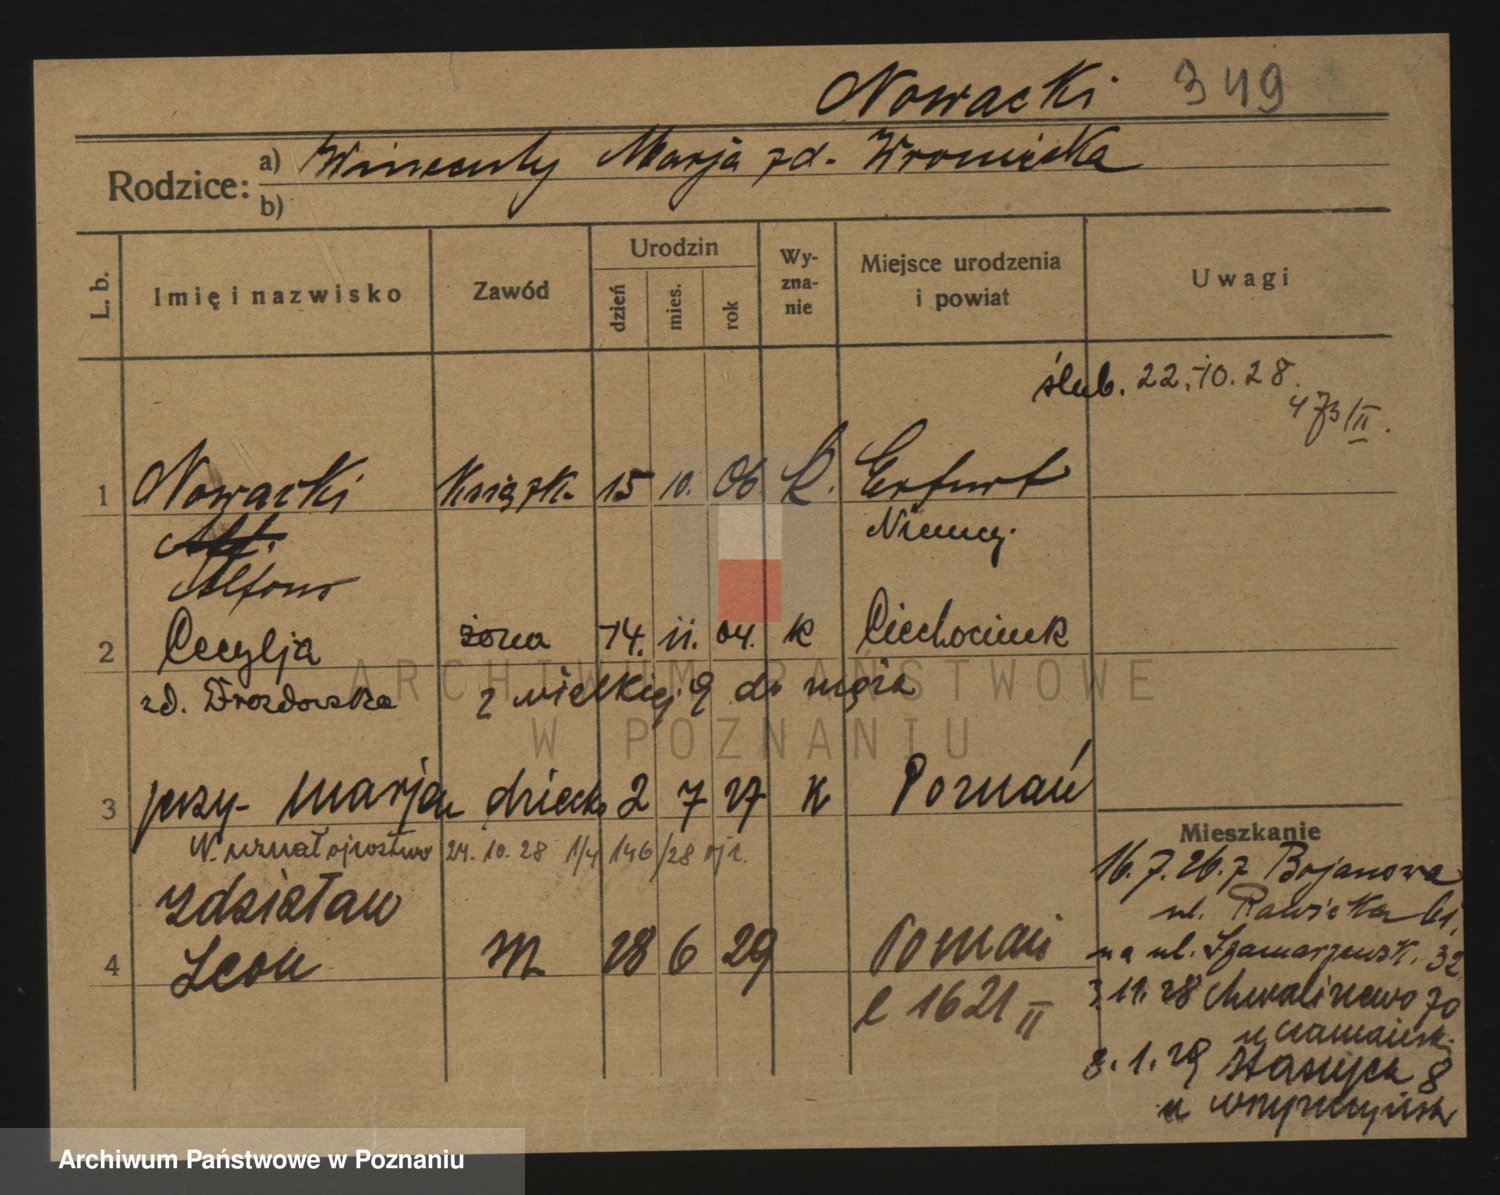 Nowacki 349
Rodzice: a) Wincenty Marja zd. Wroniecka
b)
L. b. Imię i nazwisko Zawód Urodzin dzień mies. rok Wy-zna-nie Miejsce urodzenia i powiat Uwagi
ślub. 22.10.28.
473/II.
1 Nowacki Książk. 15 10. 06. K. Erfurt
Alf. Niemcy.
Alfons
2 Cecylja żona 14. 11. 04. k Ciechocinek
zd. Drozdowska z wielkiej 9 do męża
3 Jerzy-Marjan dziecko 2 7 27 k Poznań
N. uznał ojcostwo 24.10.28 146/28
Zdzisław
4 Leon M 28 6 29 Poznań
l 1621 II
Mieszkanie
16.7.26. z Bojanowa
ul. Rawicka 61,
na ul. Szamarzewsk. 32
3.11.28 Chwaliszewo 70
u
8.1.29 Staszyca 8
u
ARCHIWUM PAŃSTWOWE
W POZNANIU
Archiwum Państwowe w Poznaniu